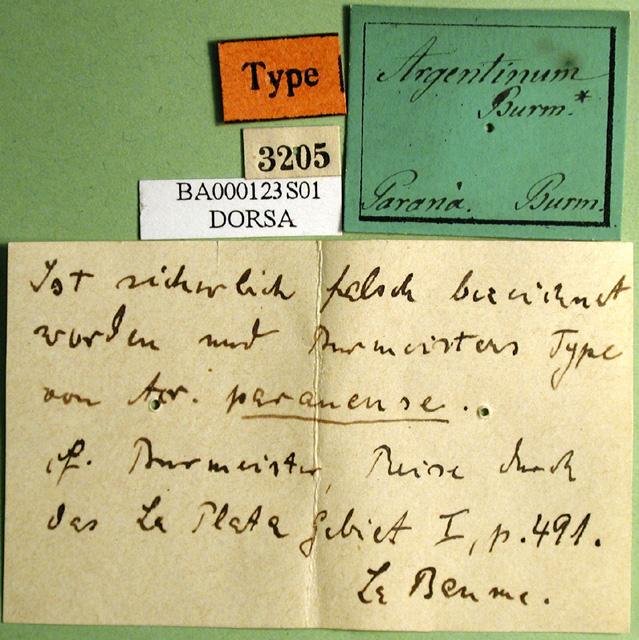 Type
Argentinum
Burm.*
Parana. Burm.
3205
BA000123S01
DORSA
Ist sicherlich falsch bezeichnet
worden und Burmeisters Type
von Acr. paranense.
cf. Burmeister, Reise durch
das La Plata gebiet I, p. 491.
La Baume.